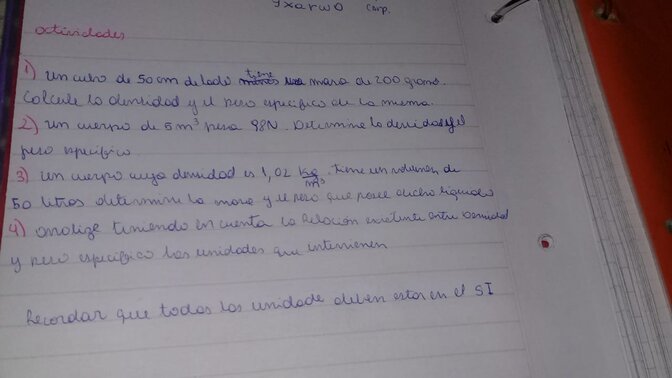 actividades
1) un cubo de 50 cm de lado tiene masa de 200 gramos.
Calcule la densidad y el peso especifico de la misma.
2) un cuerpo de 5 m³ pesa 98N. Determine la densidad y el
peso especifico.
3) un cuerpo cuya densidad es 1,02 kg/m³. tiene un volumen de
50 litros determine la masa y el peso que posee dicho liquido
4) analize teniendo en cuenta la relación existente entre densidad
y peso especifico las unidades que intervienen
Recordar que todas las unidade deben estar en el SI